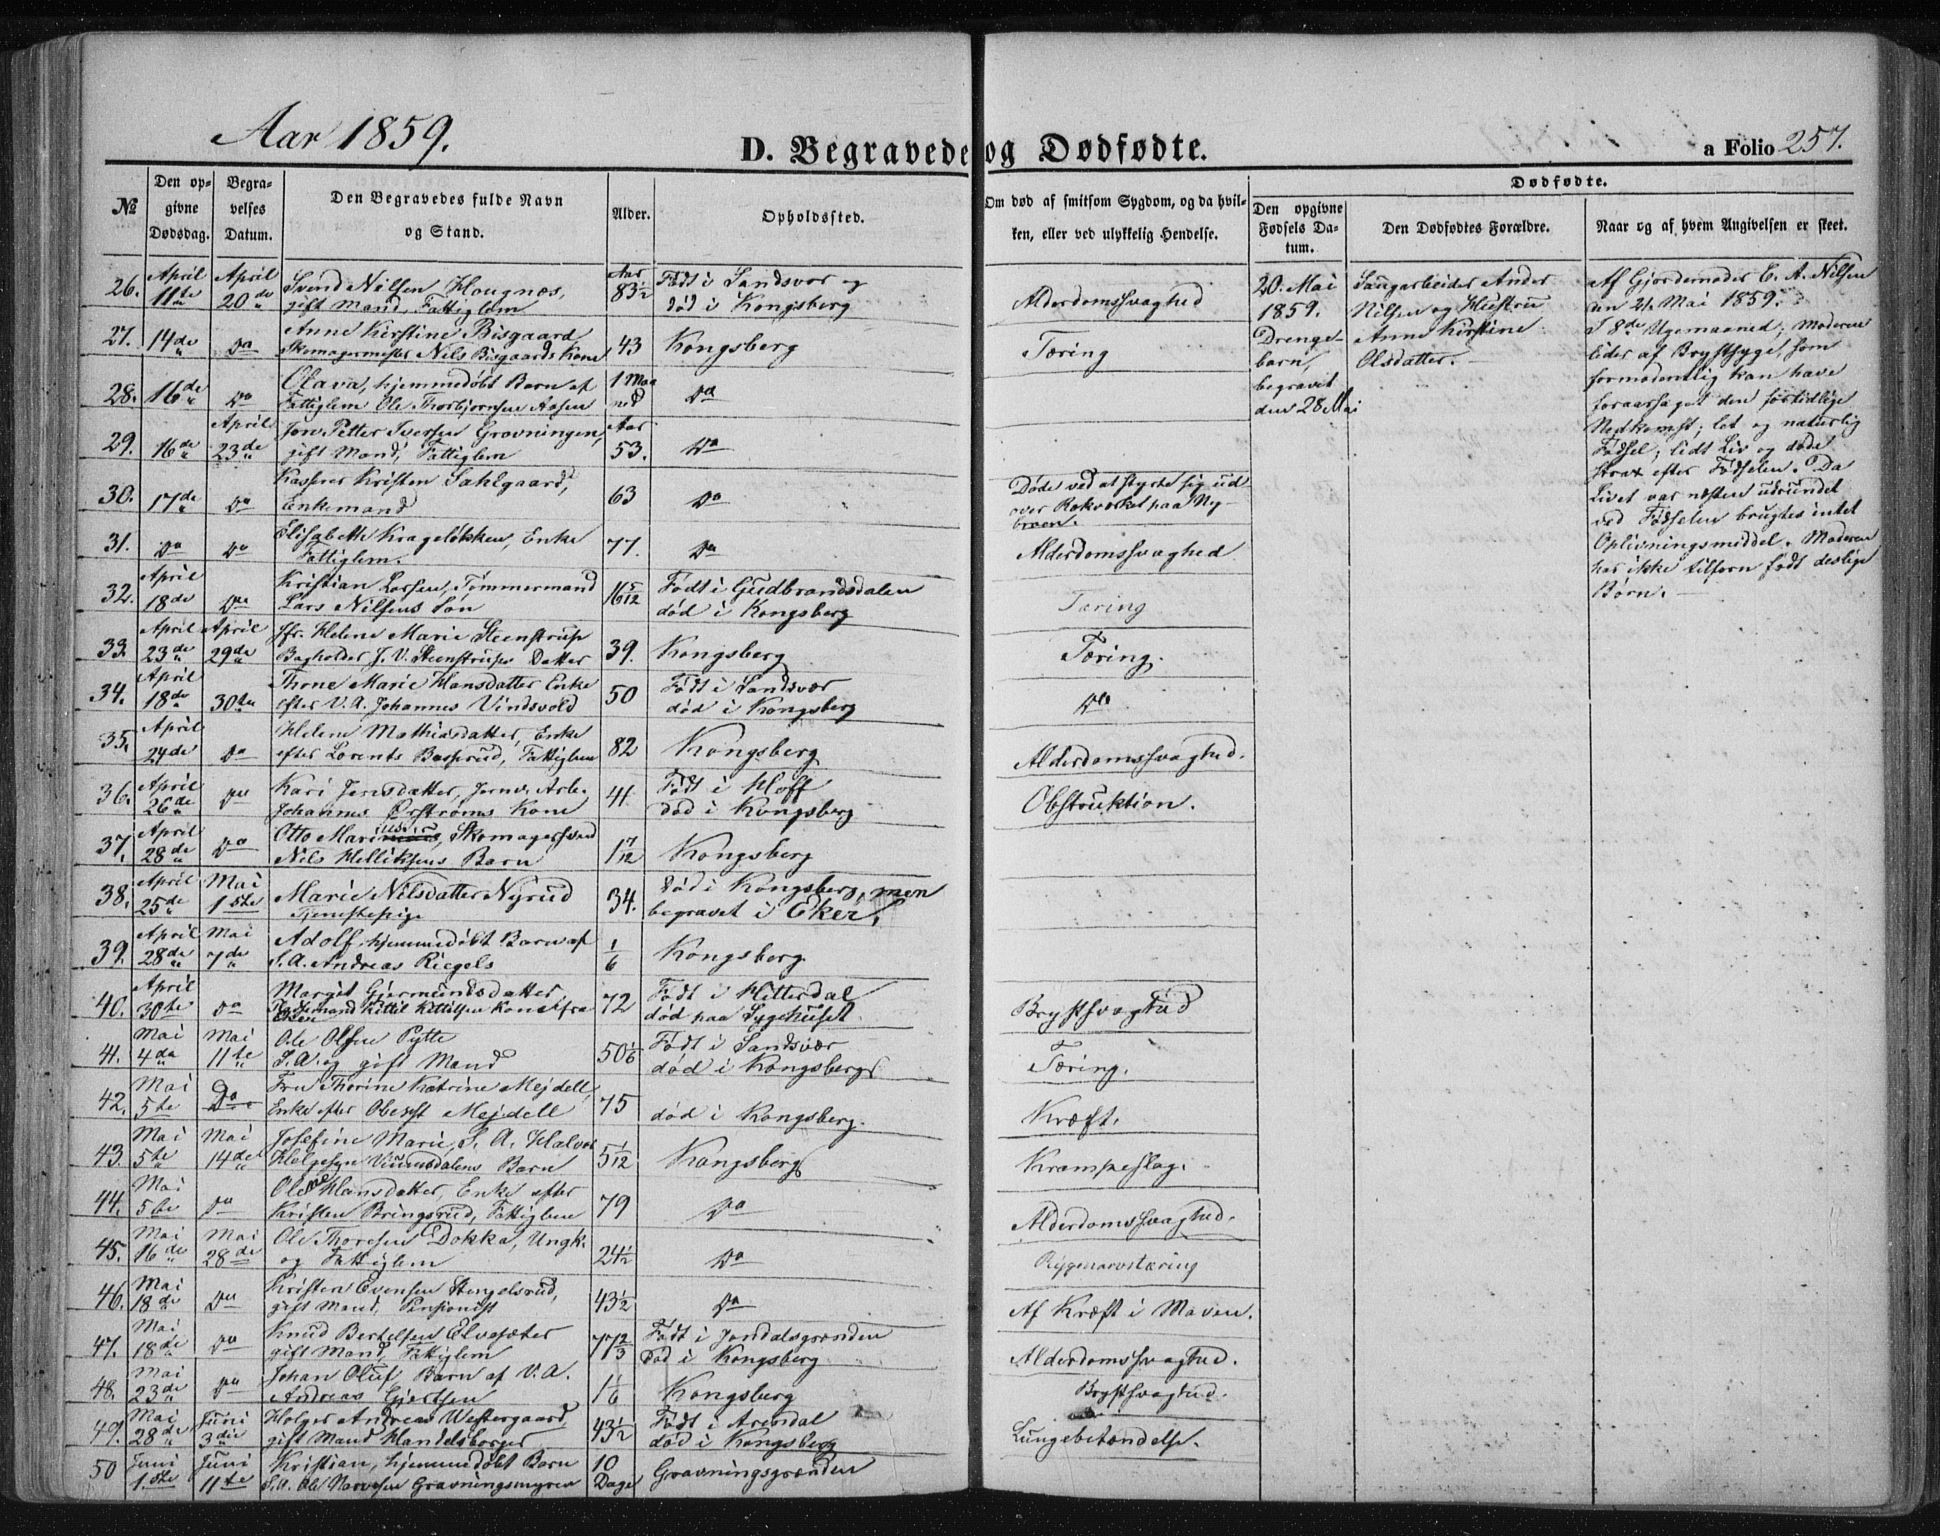 Aar 1859.
D. Begravede og Dødfødte.
a Folio 257.
№
Den opgivne Dødsdag.
Begravelses Datum.
Den Begravedes fulde Navn og Stand.
Alder.
Opholdssted.
Om død af smitsom Sygdom, og da hvilken, eller ved ulykkelig Hendelse.
Dødfødte.
Den opgivne Fødsels Datum.
Den Dødfødtes Forældre.
Naar og af hvem Angivelsen er skeet.
26. April 11te April 20de Svend Nilsen Hougnæs, Aar 83½ Født i Sandsvær og
gift Mand, Fattiglem død i Kongsberg Alderdomssvaghed
27. 14de Do Anne Kirstine Bisgaard
Skomagermester Nils Bisgaards Kone 43 Kongsberg Tæring
28. 16de Do Olava, hjemmedøbt Barn af 1 Maaned Do
Fattiglem Ole Thorbjørnsen Aasen
29. 16de April 23de Petter Iversen Gravningen, Aar 53. Do
gift Mand, Fattiglem
30. 17de Do Kasserer Kristen Sahlgaard, 63 Do Døde ved at styrte sig ud
Enkemand over Rækværket paa Nybroen.
31. Do Do Elisabeth Krageløkken, Enke 77. Do Alderdomssvaghed
Fattiglem.
32. April 18de Do Kristian Larsen, Tømmermand 16 5/12 Født i Gudbrandsdalen
Lars Nilsens Søn død i Kongsberg Tæring
33. April 23de April 29de Helene Marie Steenstrup
Bogholder J. V. Steenstrups Datter 39. Kongsberg Tæring.
34. April 18de 30te Thone Marie Hansdatter Enke 50 Født i Sandsvær
efter V. A. Johannes Vindsvold død i Kongsberg Do
35. April 24de Do Helene Mathiasdatter, Enke 82 Kongsberg Alderdomssvaghed.
efter Lorents Basserud, Fattiglem
36. April 26de Do Kari Jensdatter, Jernv. Arb. 41. Født i Hoff
Johannes Ørstrøms Kone død i Kongsberg Obstruktion.
37. April 28de Do Otto, Skomagersvend
Nils Helliksens Barn 1 7/12 Kongsberg
38. April 25de Mai 1ste Marie Nilsdatter Nyrud 34. død i Kongsberg, men
Tjenestepige begravet i Eker.
39. April 28de Mai 7de Adolf, hjemmedøbt Barn af 1/6 Kongsberg
S. A. Andreas Riegels
40. April 30te Do Margit Gjermundsdatter, 72 Født i Hitterdal
Kittil Kittilsen Kone fra død paa Sygehuset Brystsvaghed
41. Mai 4de Mai 11te Ole Olsen Pytte 50 1/6 Født i Sandsvær
S. A. og gift Mand død i Kongsberg Tæring.
42. Mai 5te Do Fru Thorine Katrine Mejdell, 75 død i Kongsberg. Kræft.
Enke efter Oberst Mejdell
43. Mai 5te Mai 14de Josefine Marie, S. A. Halvor 5/12 Kongsberg Krampeslag.
Barn
44. Mai 5te Do Olene Hansdatter, Enke efter 79 Do Alderdomssvaghed.
Kristen Bringsrud, Fattiglem
45. Mai 16de Mai 28de Ole Thoresen Dokka, Ungk. 24½ Do Rygmarvstæring
og Fattiglem
46. Mai 18de Do Kristen Evensen Stengelsrud, 43½ Do Af Kræft i Maven.
gift Mand, Pensionist
47. Mai 18de Do Knud Bertelsen Elvesæter 77 2/3 Født i Jondalsgrænden
gift Mand, Fattiglem død i Kongsberg Alderdomssvaghed.
48. Mai 23de Do Johan Oluf, Barn af V. A. 1 1/6 Kongsberg Brystsvaghed.
Andreas Gjertsen
49. Mai 28de Juni 3die Holger Andreas Westergaard, 43½ Født i Arendal
gift Mand Handelsborger død i Kongsberg Lungebetændelse.
50 Juni 1ste Juni 11te Kristian, hjemmedøbt Barn 10 Dage Gravningsgrænden
S. A. Ole Narvesen Gravningsmyren
20. Mai
1859.
Drenge-
barn,
begravet
den 28 Mai
Saugarbeider Anders
Nilsen og Hustru
Anne Kirstine
Olsdatter.
Af Gjordemoder C. A. Nilsen
den 21. Mai 1859.
I 8de Ugemaaned; Moderen
lider af Brystsyge, som
formodentlig kan have
foraarsaget den førtidlige
Nedkomst; let og naturlig
Fødsel; lidt Liv og døde
strax efter Fødselen. Da
Livet var næsten udrundet
ved Fødselen brugtes intet
Oplivningsmiddel. Moderen
har ikke tilforn født deslige
Børn.